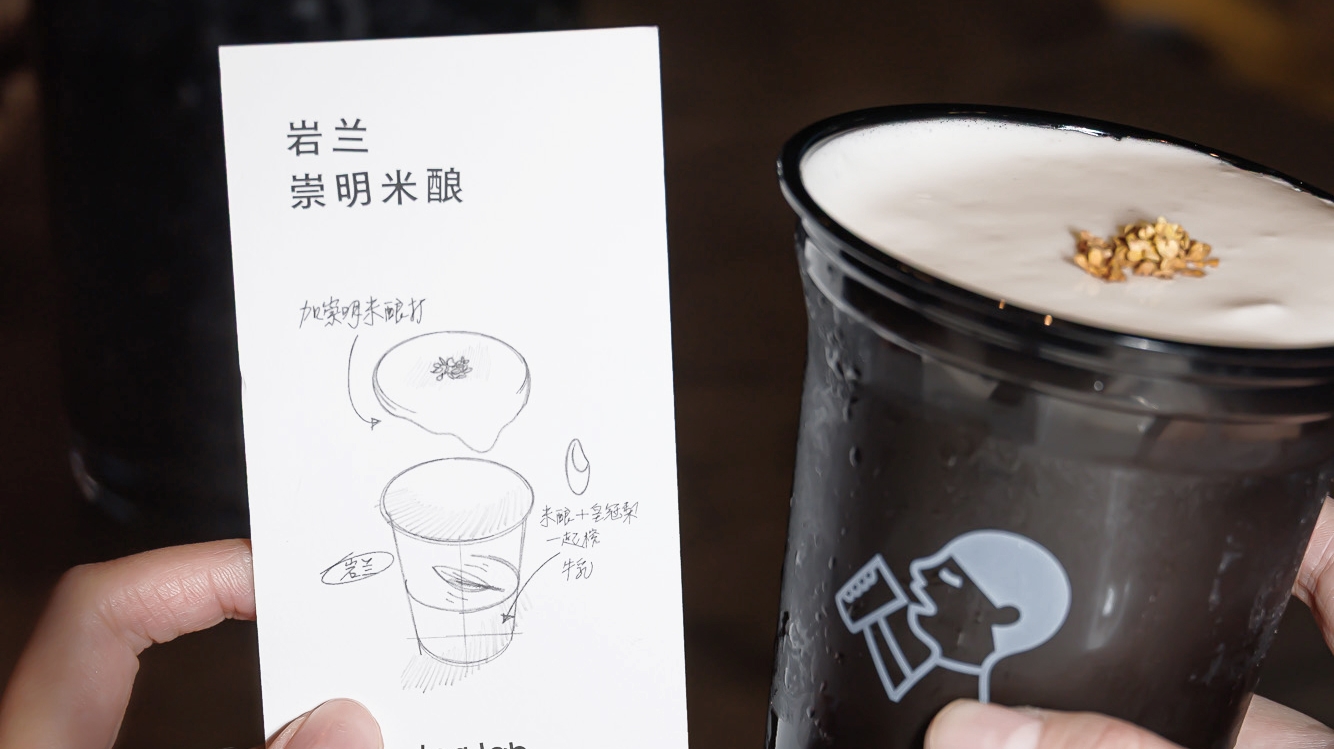 岩兰
崇明米酿
加崇明米酿打
米酿+皇冠梨
一起榨
牛乳
岩兰